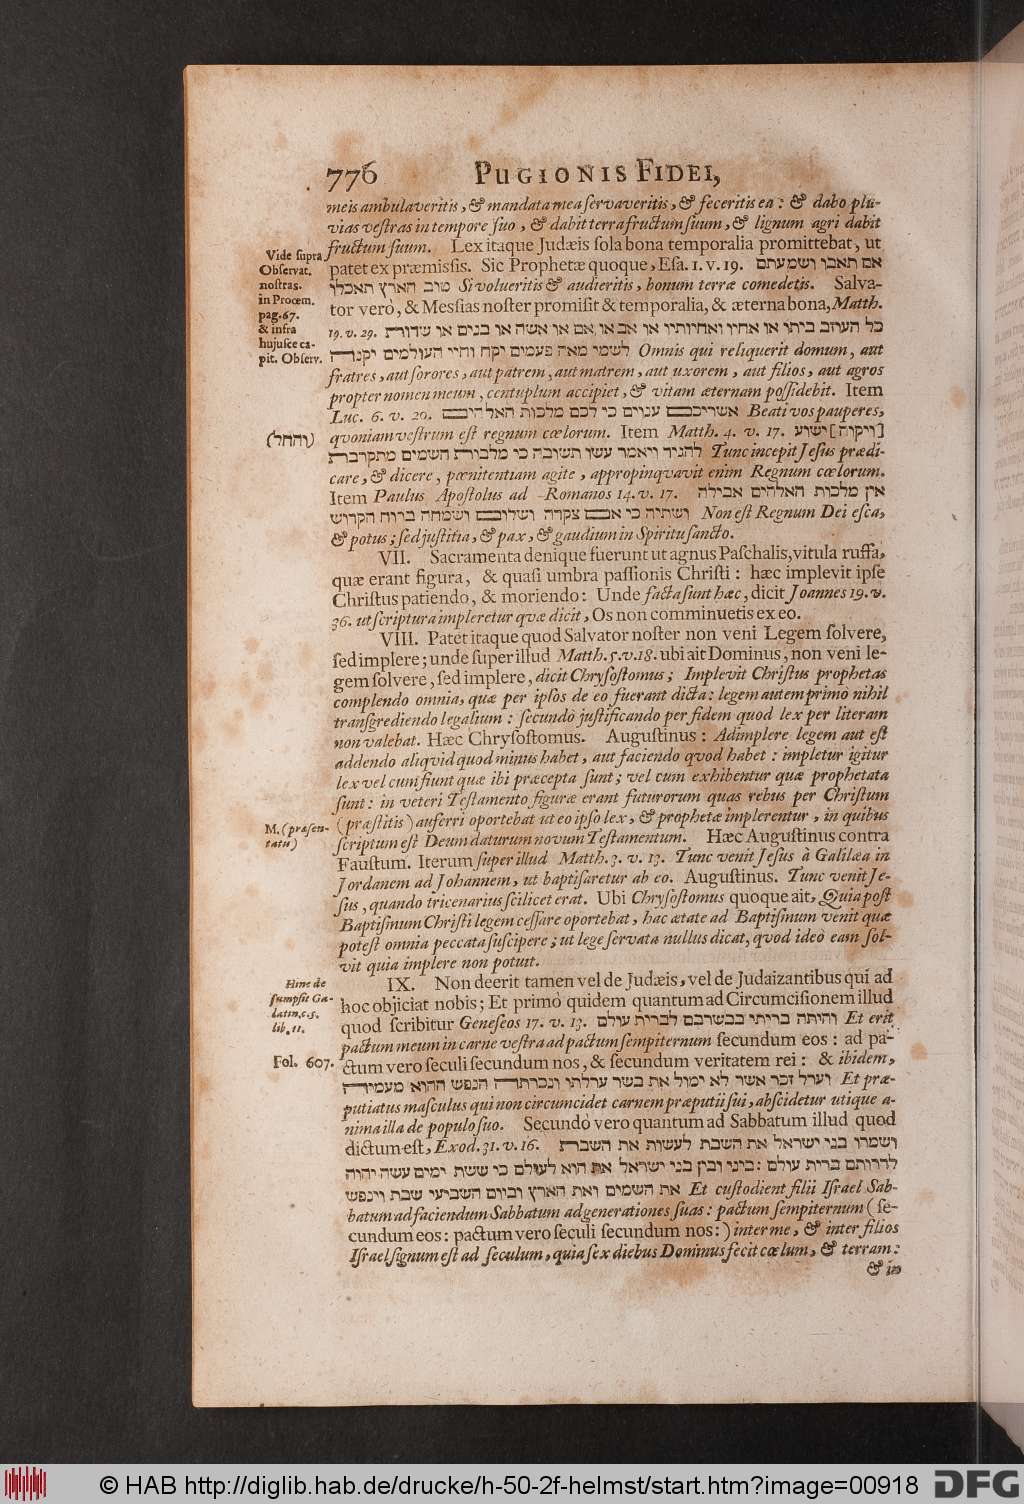 776 PUGIONIS FIDEI,
meis ambulaveritis, & mandata mea servaveritis, & feceritis ea: & dabo plu-
vias vestras in tempore suo, & dabit terra fructum suum, & lignum agri dabit
fructum suum. Lex itaque Judæis sola bona temporalia promittebat, ut
patet ex præmissis. Sic Prophetæ quoque, Esa. 1. v. 19. אם תאבו ושמעתם
טוב הארץ תאכלו Si volueritis & audieritis, bonum terræ comedetis. Salva-
tor verò, & Messias noster promisit & temporalia, & æterna bona, Matth.
19. v. 29. כל העוזב ביתו או אחיו ואחיותיו או אב או אם או אשה או בנים או שדורת
לשמי מאה פעמים יקח וחיי העולמים יקנה Omnis qui reliquerit domum, aut
fratres, aut sorores, aut patrem, aut matrem, aut uxorem, aut filios, aut agros
propter nomen meum, centuplum accipiet, & vitam æternam possidebit. Item
Luc. 6. v. 20. אשריכם ענוים כי לכם מלכות האלהים Beati vos pauperes,
quoniam vestrum est regnum cœlorum. Item Matth. 4. v. 17. [ויקוה] ישוע
להגיד ויאמר עשו תשובה כי מלכורת השמים מתקרברת Tunc incepit Jesus prædi-
care, & dicere, pœnitentiam agite, appropinqvavit enim Regnum cœlorum.
Item Paulus Apostolus ad Romanos 14. v. 17. אין מלכות האלהים אכילה
ושתיה כי אם צקדה ושלום ושמחה ברוח הקדוש Non est Regnum Dei esca,
& potus; sed justitia, & pax, & gaudium in Spiritu sancto.
VII. Sacramenta denique fuerunt ut agnus Paschalis, vitula ruffa,
quæ erant figura, & quasi umbra passionis Christi: hæc implevit ipse
Christus patiendo, & moriendo: Unde facta sunt hæc, dicit Joannes 19. v.
36. ut scriptura impleretur qvæ dicit, Os non comminuetis ex eo.
VIII. Patet itaque quod Salvator noster non veni Legem solvere,
sed implere; unde super illud Matth. 5. v. 18. ubi ait Dominus, non veni le-
gem solvere, sed implere, dicit Chrysostomus; Implevit Christus prophetas
complendo omnia, quæ per ipsos de eo fuerant dicta: legem autem primò nihil
transgrediendo legalium: secundò justificando per fidem quod lex per literam
non valebat. Hæc Chrysostomus. Augustinus: Adimplere legem aut est
addendo aliqvid quod minus habet, aut faciendo qvod habet: impletur igitur
lex vel cum fiunt quæ ibi præcepta sunt; vel cum exhibentur quæ prophetata
sunt: in veteri Testamento figuræ erant futurorum quas rebus per Christum
(præstitis) auferri oportebat ut eo ipso lex, & prophetæ implerentur, in quibus
scriptum est Deum daturum novum Testamentum. Hæc Augustinus contra
Faustum. Iterum super illud Matth. 3. v. 13. Tunc venit Jesus à Galilæa in
Jordanem ad Johannem, ut baptisaretur ab eo. Augustinus. Tunc venit Je-
sus, quando tricenarius scilicet erat. Ubi Chrysostomus quoque ait, Quia post
Baptismum Christi legem cessare oportebat, hac ætate ad Baptismum venit quæ
potest omnia peccata suscipere; ut lege servata nullus dicat, qvod ideò eam sol-
vit quia implere non potuit.
IX. Non deerit tamen vel de Judæis, vel de Judaizantibus qui ad
hoc objiciat nobis; Et primò quidem quantum ad Circumcisionem illud
quod scribitur Geneseos 17. v. 13. והיתה בריתי בבשרכם לברית עולם Et erit
pactum meum in carne vestra ad pactum sempiternum secundum eos: ad pa-
ctum vero seculi secundum nos, & secundum veritatem rei: & ibidem,
וערל זכר אשר לא ימול את בשר ערלתו ונכרתה הנפש ההוא מעמיה Et præ-
putiatus masculus qui non circumcidet carnem præputii sui, abscidetur utique a-
nima illa de populo suo. Secundò vero quantum ad Sabbatum illud quod
dictum est, Exod. 31. v. 16. ושמרו בני ישראל את השבת לעשות את השברת
לדרותם ברית עולם: ביני ובין בני ישראל את הוא לעולם כי ששת ימים עשה יהוה
את השמים ואת הארץ וביום השביעי שבת וינפש Et custodient filii Israel Sab-
batum ad faciendum Sabbatum ad generationes suas: pactum sempiternum (se-
cundum eos: pactum vero seculi secundum nos:) inter me, & inter filios
Israel signum est ad seculum, quia sex diebus Dominus fecit cœlum, & terram:
& in
Vide supra
Observat.
nostras.
in Proœm.
pag. 67.
& infra
hujusce ca-
pit. Observ.
(והחל)
M. (præsen-
tatis)
Hinc de
sumpsit Ga-
latin. c. 5.
lib. 11.
Fol. 607.
© HAB http://diglib.hab.de/drucke/h-50-2f-helmst/start.htm?image=00918
DFG